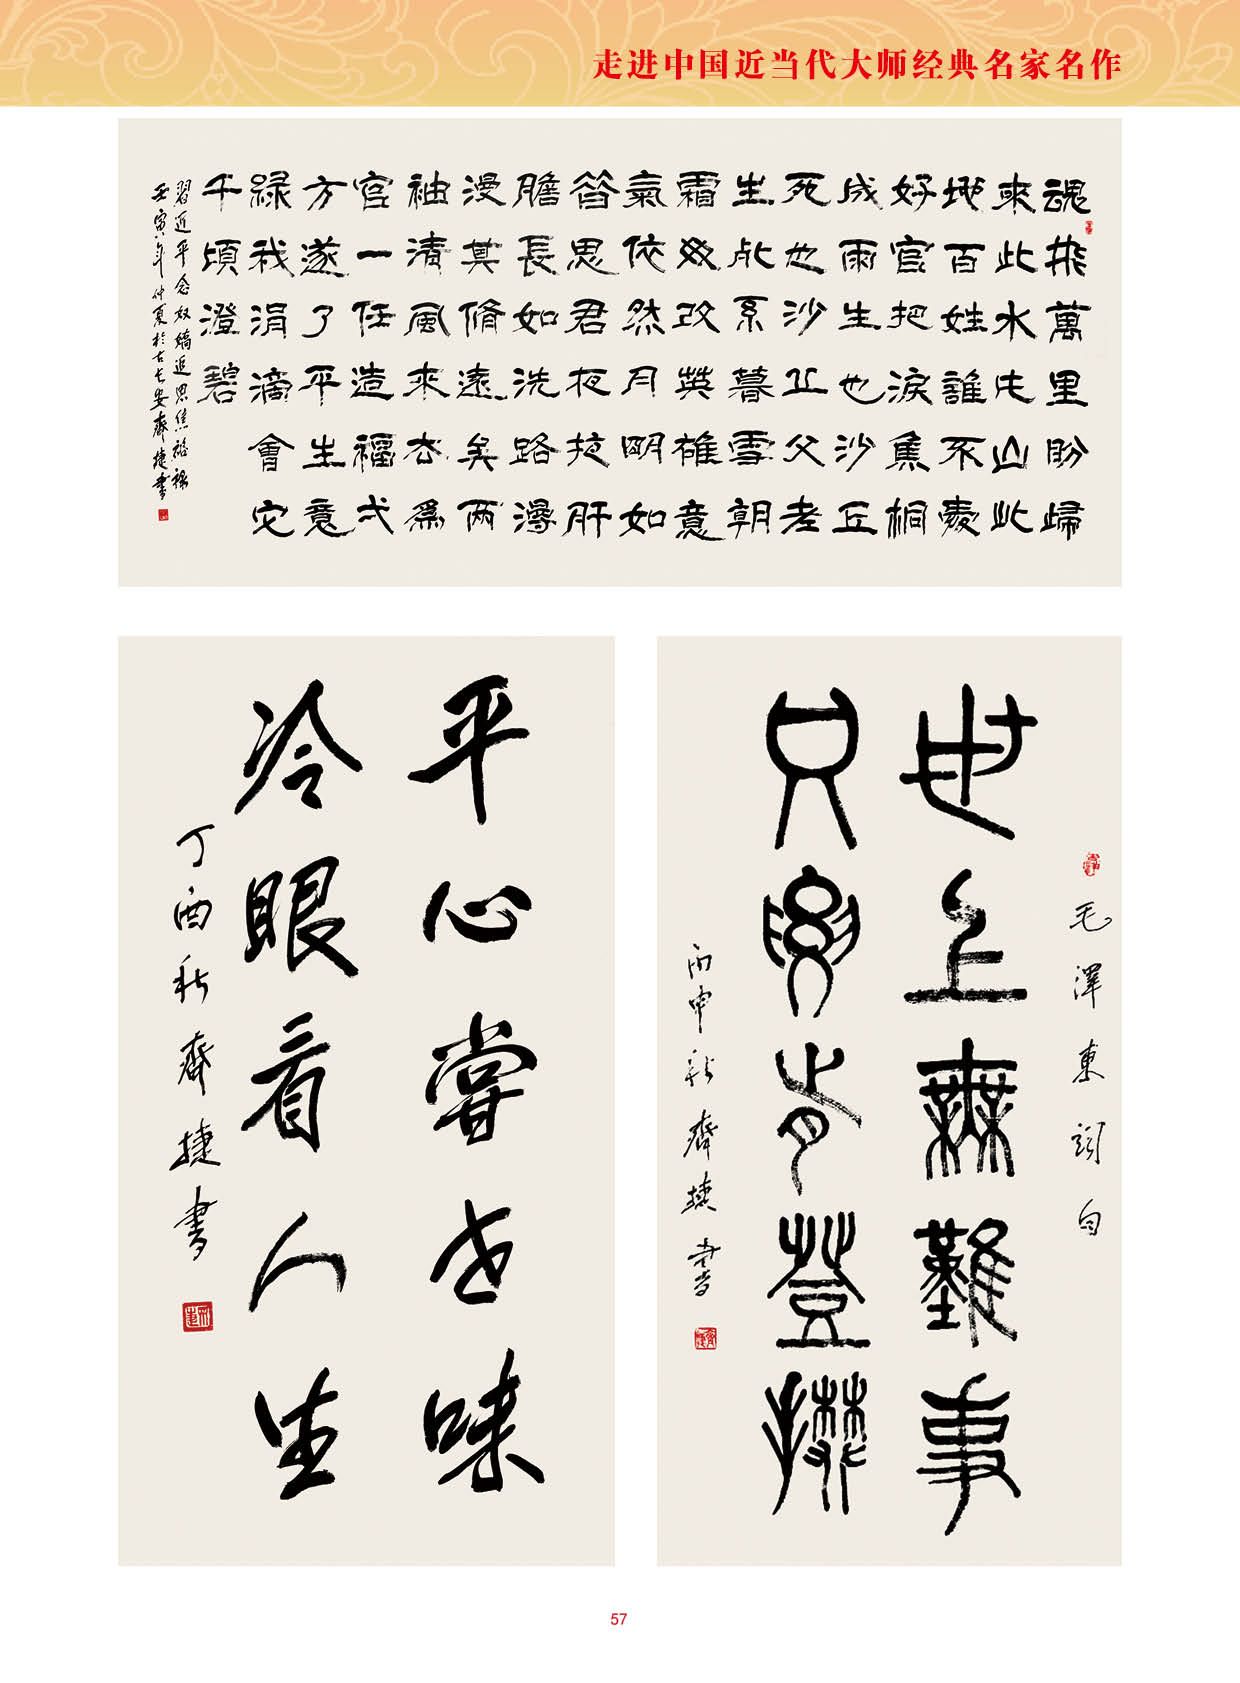 走进中国近当代大师经典名家名作
魂飛萬里盼歸
來此水此山此
地百姓誰不愛
好官把淚焦桐
成雨生也沙丘
死也沙丘父老
生死系暮雪朝
霜毋改英雄意
氣依然月明如
昔思君夜夜肝
膽長如洗路漫
漫其修遠矣兩
袖清風來去為
官一任造福弌
方遂了平生意
綠我涓滴會它
千頃澄碧
習近平念奴嬌追思焦裕祿
壬寅年仲夏於古長安齊捷書
平心嘗世味
冷眼看人生
丁酉秋齊捷書
毛澤東詞句
世上無難事
只要肯登攀
丙申秋齊捷書
57